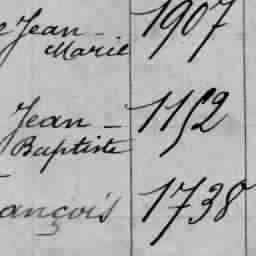 Jean- 1907
Marie
Jean- 1152
Baptiste
ançois 1738